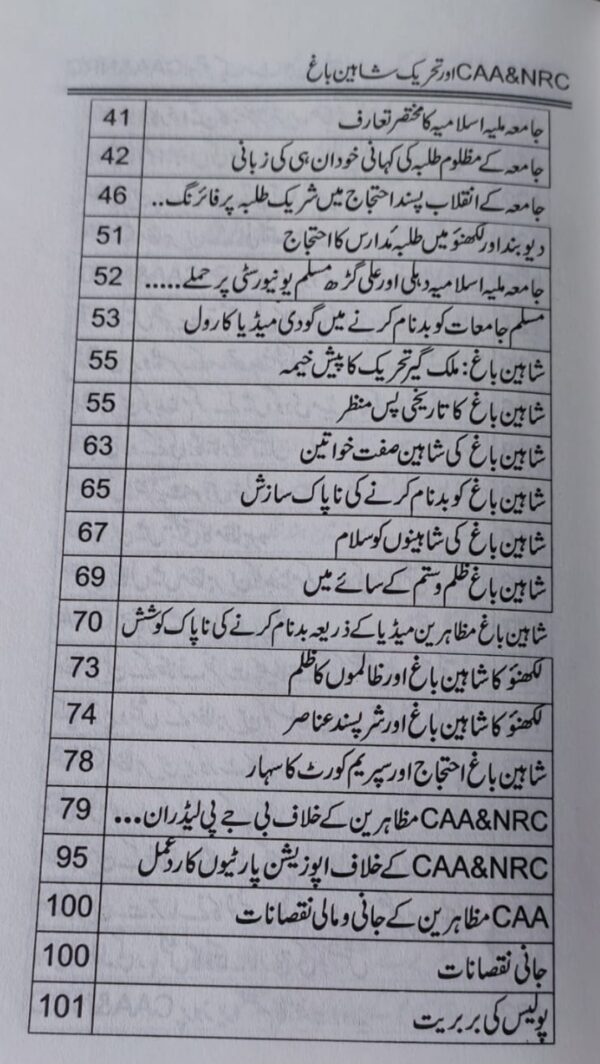 CAA&NRC اور تحریک شاہین باغ
جامعہ ملیہ اسلامیہ کا مختصر تعارف 41
جامعہ کے مظلوم طلبہ کی کہانی خود ان ہی کی زبانی 42
جامعہ کے انقلاب پسند احتجاج میں شریک طلبہ پر فائرنگ.. 46
دیوبند اور لکھنؤ میں طلبہ مدارس کا احتجاج 51
جامعہ ملیہ اسلامیہ دہلی اور علی گڑھ مسلم یونیورسٹی پر حملے..... 52
مسلم جامعات کو بدنام کرنے میں گودی میڈیا کا رول 53
شاہین باغ: ملک گیر تحریک کا پیش خیمہ 55
شاہین باغ کا تاریخی پس منظر 55
شاہین باغ کی شاہین صفت خواتین 63
شاہین باغ کو بدنام کرنے کی ناپاک سازش 65
شاہین باغ کی شاہینوں کو سلام 67
شاہین باغ ظلم و ستم کے سائے میں 69
شاہین باغ مظاہرین میڈیا کے ذریعہ بدنام کرنے کی ناپاک کوشش 70
لکھنؤ کا شاہین باغ اور ظالموں کا ظلم 73
لکھنؤ کا شاہین باغ اور شر پسند عناصر 74
شاہین باغ احتجاج اور سپریم کورٹ کا سہار 78
CAA&NRC مظاہرین کے خلاف بی جے پی لیڈران... 79
CAA&NRC کے خلاف اپوزیشن پارٹیوں کا رد عمل 95
CAA مظاہرین کے جانی و مالی نقصانات 100
جانی نقصانات 100
پولیس کی بربریت 101